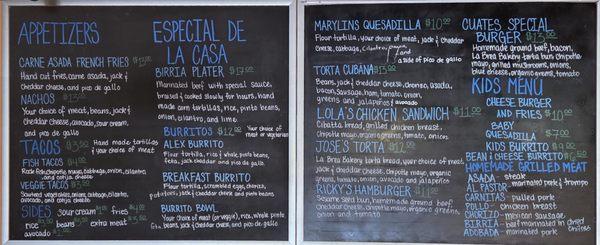 APPETIZERS
CARNE ASADA FRENCH FRIES
Hand cut fries, carne asada, jack &
Cheddar cheese, and pico de gallo
NACHOS
Your choice of meat, beans, jack &
Cheddar cheese, avocado, sour cream,
and pico de gallo
TACOS $3.50 Hand made tortillas
& your choice of meat
FISH TACOS
and cotija cheese
VEGGIE TACO
and cotija cheese
SIDES sour cream fries
rice beans extra meat
avocado
ESPECIAL DE
LA CASA
BIRRIA PLATER $17.00
Marinated beef with special sauce,
braised & cooked slowly for hours, hand
made corn tortillas, rice, pinto beans,
onion, cilantro, and lime
BURRITOS $12.00 Your choice of
meat or vegetarian
ALEX BURRITO
Flour tortilla, rice & whole pinto beans,
jack & cheddar cheese, and pico de gallo
BREAKFAST BURRITO
Flour tortilla, scrambled eggs, chorizo,
jack & cheddar cheese and pinto beans
BURRITO BOWL
Your choice of meat (or veggie), rice, whole pinto
MARYLINS QUESADILLA $10.00
Flour tortilla, your choice of meat, jack & cheddar
cheese, cabbage, cilantro, and
a side of pico de gallo
TORTA CUBANA
Beans, jack & cheddar cheese, chorizo, asada,
bacon, sausage, ham, tomato, onion,
greens and jalapeños & avocado
LOLA'S CHICKEN SANDWICH $11.00
Cibatta bread, grilled chicken breast,
Chipotle mayo, organic greens, tomato, onions
JOSE'S TORTA $12.00
La Brea Bakery torta bread, your choice of meat,
jack & cheddar cheese, chipotle mayo, organic
greens, tomato, onion, avocado and jalapeños
RICKY'S HAMBURGER
Sesame seed bun, homemade ground beef,
Cheddar cheese, chipotle mayo, organic greens,
onion and tomato
CUATES SPECIAL
BURGER
Homemade ground beef, bacon,
La Brea Bakery torta bun, chipotle
mayo, grilled mushrooms, onions,
blue cheese, organic greens, tomato
KIDS MENU
CHEESE BURGER
AND FRIES $10.00
BABY
QUESADILLA $7.00
KIDS BURRITO
BEAN & CHEESE BURRITO
HOMEMADE GRILLED MEAT
ASADA - steak
AL PASTOR - marinated pork &
CARNITAS - pulled pork
POLLO - chicken breast
CHORIZO - mexican sausage
BIRRIA - marinated beef in dried
chiles
ADOBADA - marinated pork